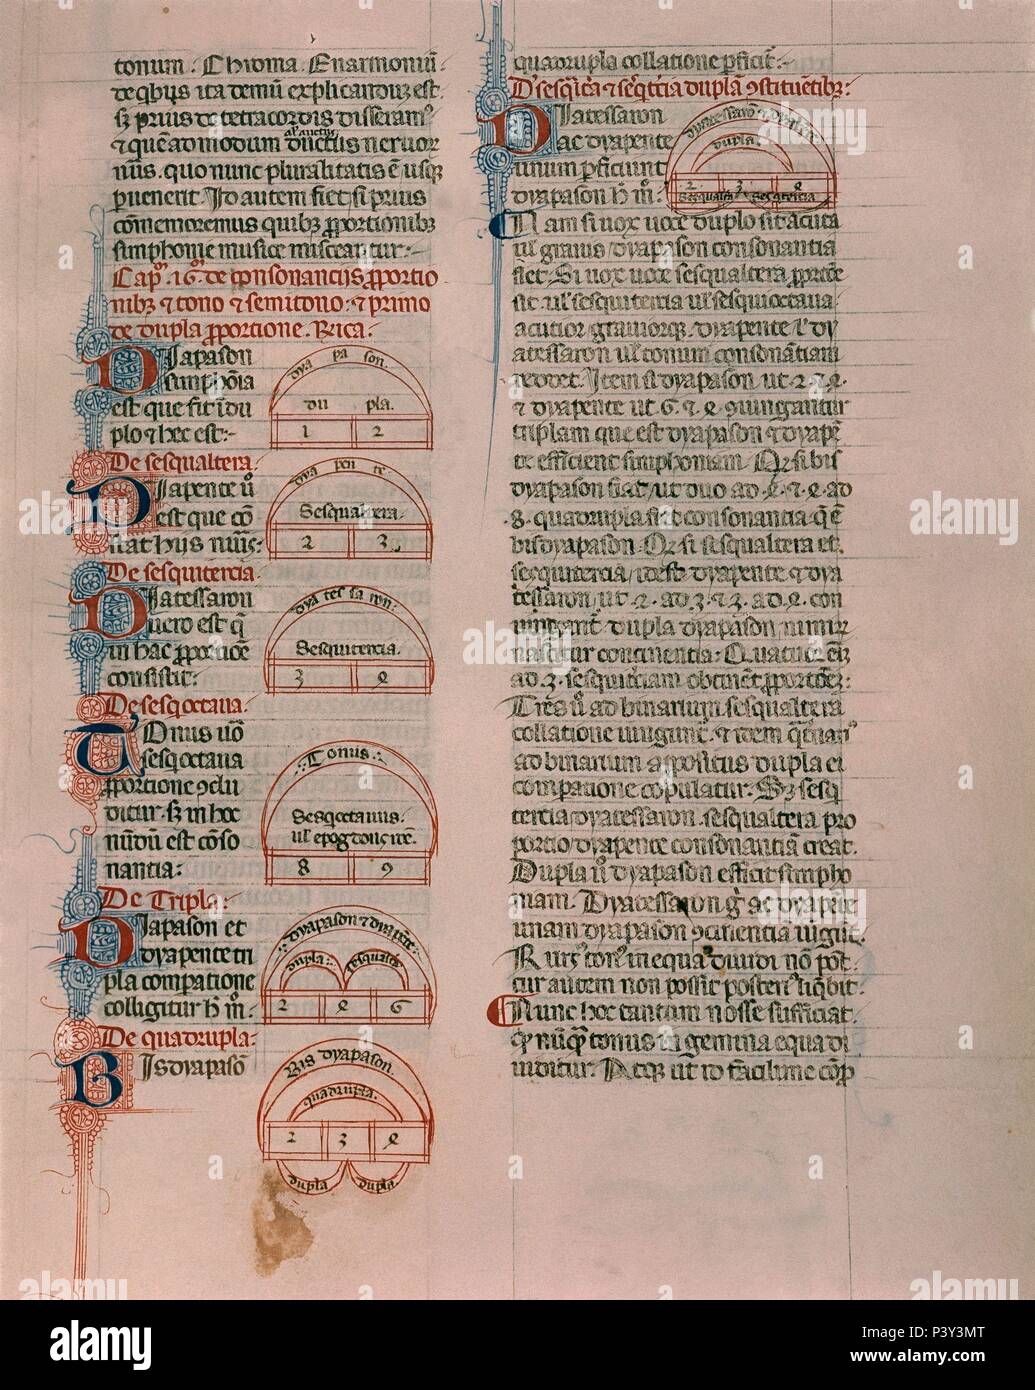 tonum. Chroma. Enarmoniū
de qbus ita demū explicandū est.
prius de tetracordis disseram
al' auctus
& quēadmodum ductus neruor
nūs. quo nunc pluralitatis ē usq
puenerit. Id autem fiet si prius
cōmemoremus quibus pportionibus
simphonie musice misceantur:
Cap. 16. de consonanciis pportio
nibus & tono & semitono. & primo
de dupla pportione. Brica.
Diapason
simphōia
est que fit ī du
plo & hec est:
dya pa son.
du pla.
1 2
De sesqualtera.
Diapente ū
est que cō
stat hijs nūis:
dya pen te
Sesqualtera.
2 3
De sesquitercia.
Diatessaron
uero est q
in hac pporcōe
consistit:
dya tes sa ron.
Sesquitercia.
3 4
De sesqoctaua.
Tonus uō
sesqoctaua
pportione 9clu
ditur. in hoc
nūdū est cōso
nantia:
Tonus.
Sesqoctauus.
ul epogdous
8 9
De Tripla:
Diapason et
dyapente tri
pla comparatione
colligitur h m.
dyapason & dyapēte
dupla. sesqualta
2 4 6
De quadrupla:
Bis dyapasō
Bis dyapason.
quadrupla.
2 3 4
dupla dupla
quadrupla collatione pficit:
D' sesqtēa & sesqtercia duplā 9stituētibus:
Diatessaron
ac dyapente
unum pficiunt
dyapason h m.
dyatessarō & dyapēte
dupla.
2 3 4
Sesqualta Sesqtercia
Nam si uox uoce duplo sit acuta
ul grauis dyapason consonantia
fiet. Si uox uoce sesqualtera pporcōe
sit. ul' sesquitercia ul' sesquioctaua
acutior grauiorq. dyapente l' dy
atessaron ul' tonum consonātiam
reddet. Item si dyapason ut 2. & 4.
& dyapente ut 6. & 4. 9iungantur
triplam que est dyapason & dyapē
te efficient simphoniam. Q si bis
dyapason fiat, ut duo ad 4. & 4. ad
8. quadrupla fiet consonantia. q ē
bisdyapason. Q si sesqualtera et
sesquitercia, idest dyapente & dya
tessaron, ut 2. ad 3. & 3. ad 4. con
iungant. dupla dyapason
nascitur continentia. Quatuor eīz
ad 3. sesquitciam obtinēt pporcōez:
Tres ū ad binarium sesqualtera
collatione iungunt. & idem qtnari
ad binarium appositus dupla ei
compatione copulatur. Sz sesq
tercia dyatessaron. sesqualtera pro
portio dyapente consonantiā creat.
Dupla ū dyapason efficit simpho
niam. Dyatessaron g ac dyapēte
unam dyapason iūgūt.
Rurs ton in equa diuidi nō pot.
cur autem non possit posteri liqbit.
Nunc hoc tantum nosse sufficiat.
q nūq tonus in gemina equa di
uiditur. Atq ut id facilime cōp
alamy
Image ID: P3Y3MT
www.alamy.com